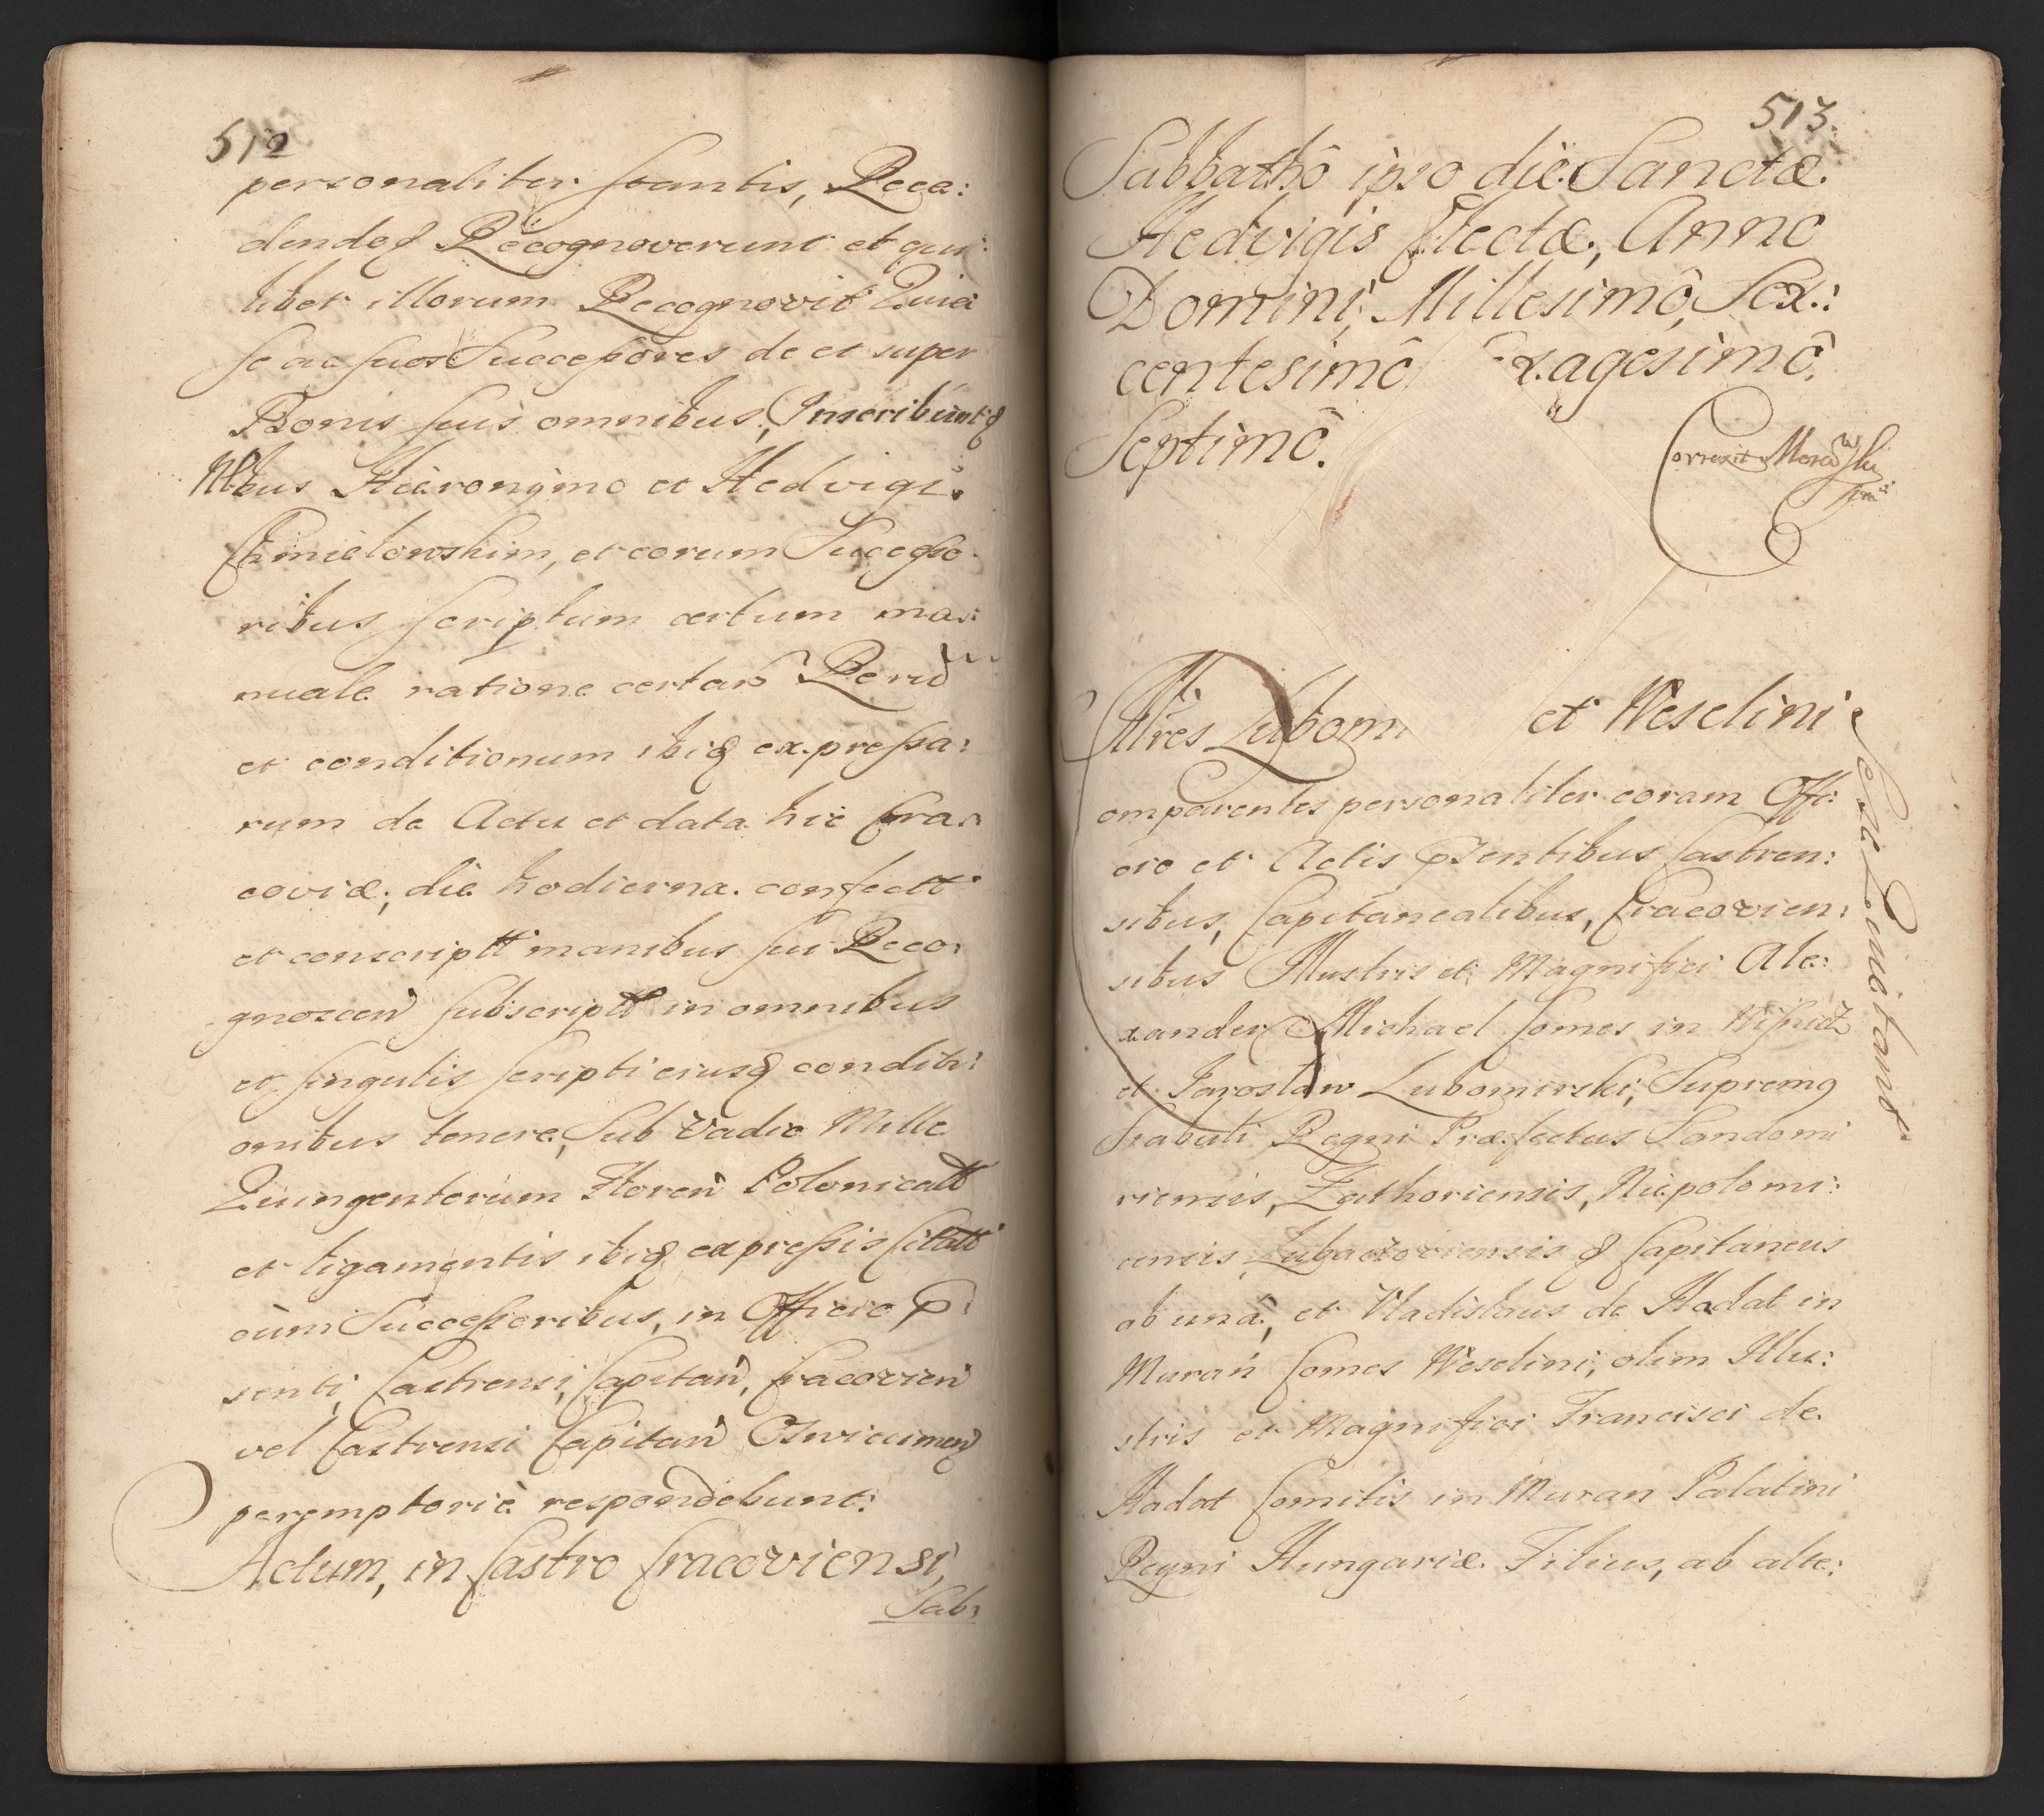 512
personaliter stantis, Rece:
dendoq Recognoverunt et qui:
libet illorum Recognovit Quia
se ac suos Successores de et super
Bonis suis omnibus, Inscribuntq
Mbus Hieronymo et Hedvigi
Chmielowskim, et eorum Successo
ribus scriptum certum ma:
nuale ratione certar Rerū
et conditionum ibiq expressa:
rum de Actu et data hic Cra:
coviæ, die hodierna confectt
et conscriptt manibus sui Reco:
gnoscen subscriptt in omnibus
et singulis scripti eiusq conditi:
onibus tenere, Sub Vadio Mille
Quingentorum Floren Polonicatt
et ligamentis ibiq expressis citatt
cum Successoribus, in Officio p:
senti, Castrensi, Capitan, Cracovien
vel Castrensi Capitan Oswiecimen
peremptoriè respondebunt:
Actum, in Castro Cracoviensi,
Sab:
513
Sabbathô ipso die Sanctæ
Hedvigis Electæ, Anno
Domini, Millesimô, Sex:
centesimô xagesimô
Septimô.
Correxit
Illres Lubom et Weselini
omparentes personaliter coram Offi:
cio et Actis psentibus Castren:
sibus, Capitanealibus, Cracovien:
sibus Illustris et Magnifici Ale:
xander Michael Comes in Wisnicz
et Jaroslaw Lubomirski, Supremq
Stabuli Regni Præfectus Sandomi
riensis, Zathoriensis, Niepolomi:
censis, Lubaczoviensis q Capitaneus
ab una, et Vladislaus de Hadat in
Muran Comes Weselini, olim Illu:
stris et Magnifici Francisci de
Hadat Comitis in Muran Palatini
Regni Hungariæ Filius, ab alte: